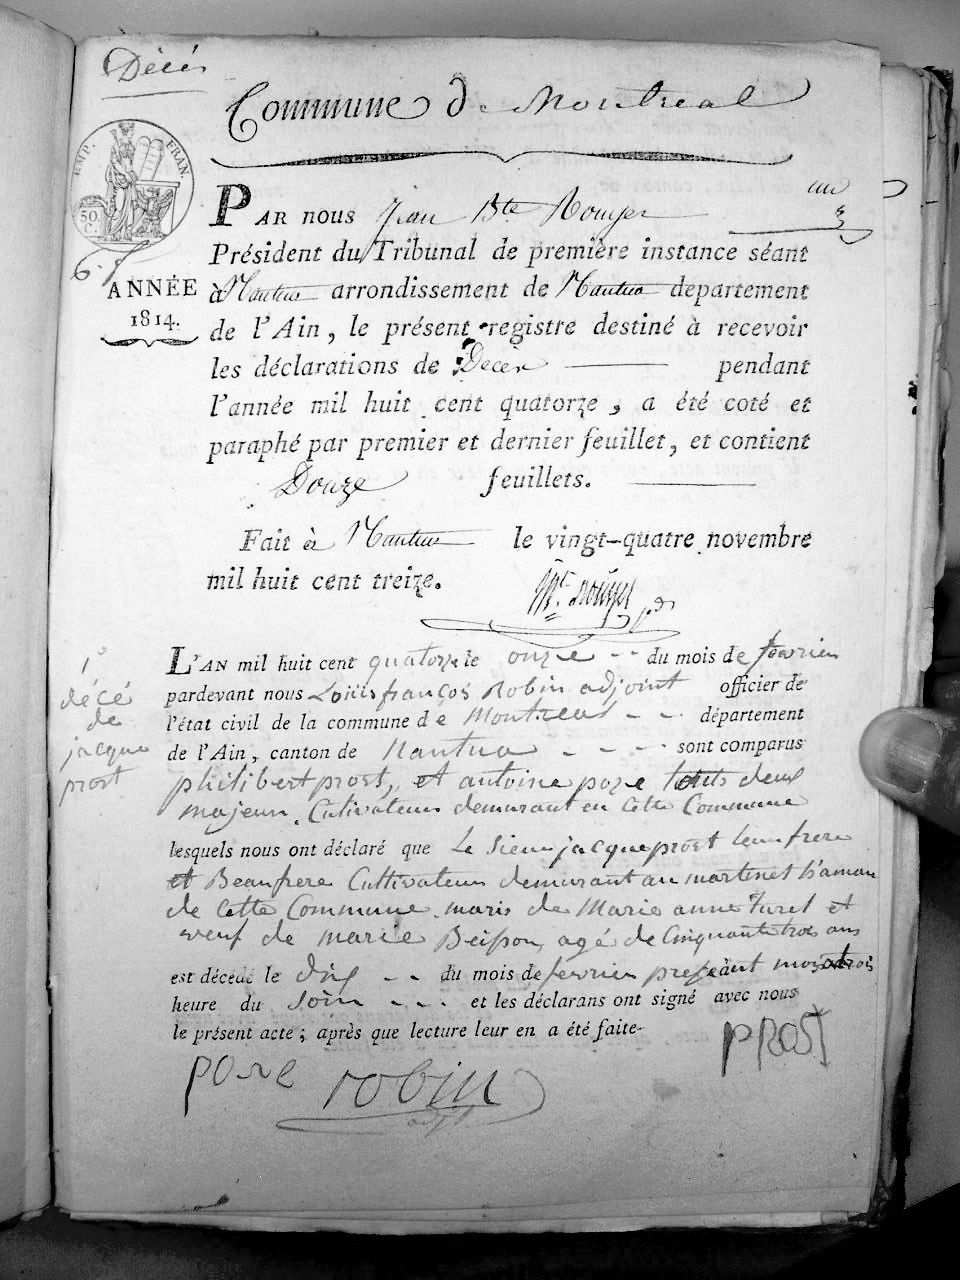 Décès
Commune de Montreal
EMP. FRAN.
50 C.
un
PAR nous Jean Bte Rouyer
Président du Tribunal de première instance séant
à Nantua arrondissement de Nantua departement
de l'Ain, le présent registre destiné à recevoir
les déclarations de Décès pendant
l'année mil huit cent quatorze, a été coté et
paraphé par premier et dernier feuillet, et contient
Douze feuillets.
ANNÉE
1814.
Fait à Nantua le vingt-quatre novembre
mil huit cent treize.
1o
décé
de
jacque
prost
L'AN mil huit cent quatorze le onze du mois de fevrier
pardevant nous Louis françois Robin adjoint officier de
l'état civil de la commune de Montreal département
de l'Ain, canton de Nantua sont comparus
philibert prost, et antoine poze touts deux
majeur, Cultivateurs demurant en cette Commune
lesquels nous ont déclaré que Le Sieur jacque prost leur frere
et Beaufrere Cultivateur demurant au martinet
de cette Commune maris de Marie anne Turel et
veuf de marie agé de Cinquante trois ans
est décédé le dix du mois de fevrier present mois a trois
heure du soir et les déclarans ont signé avec nous
le présent acte; après que lecture leur en a été faite
poze robin PROST
adjt